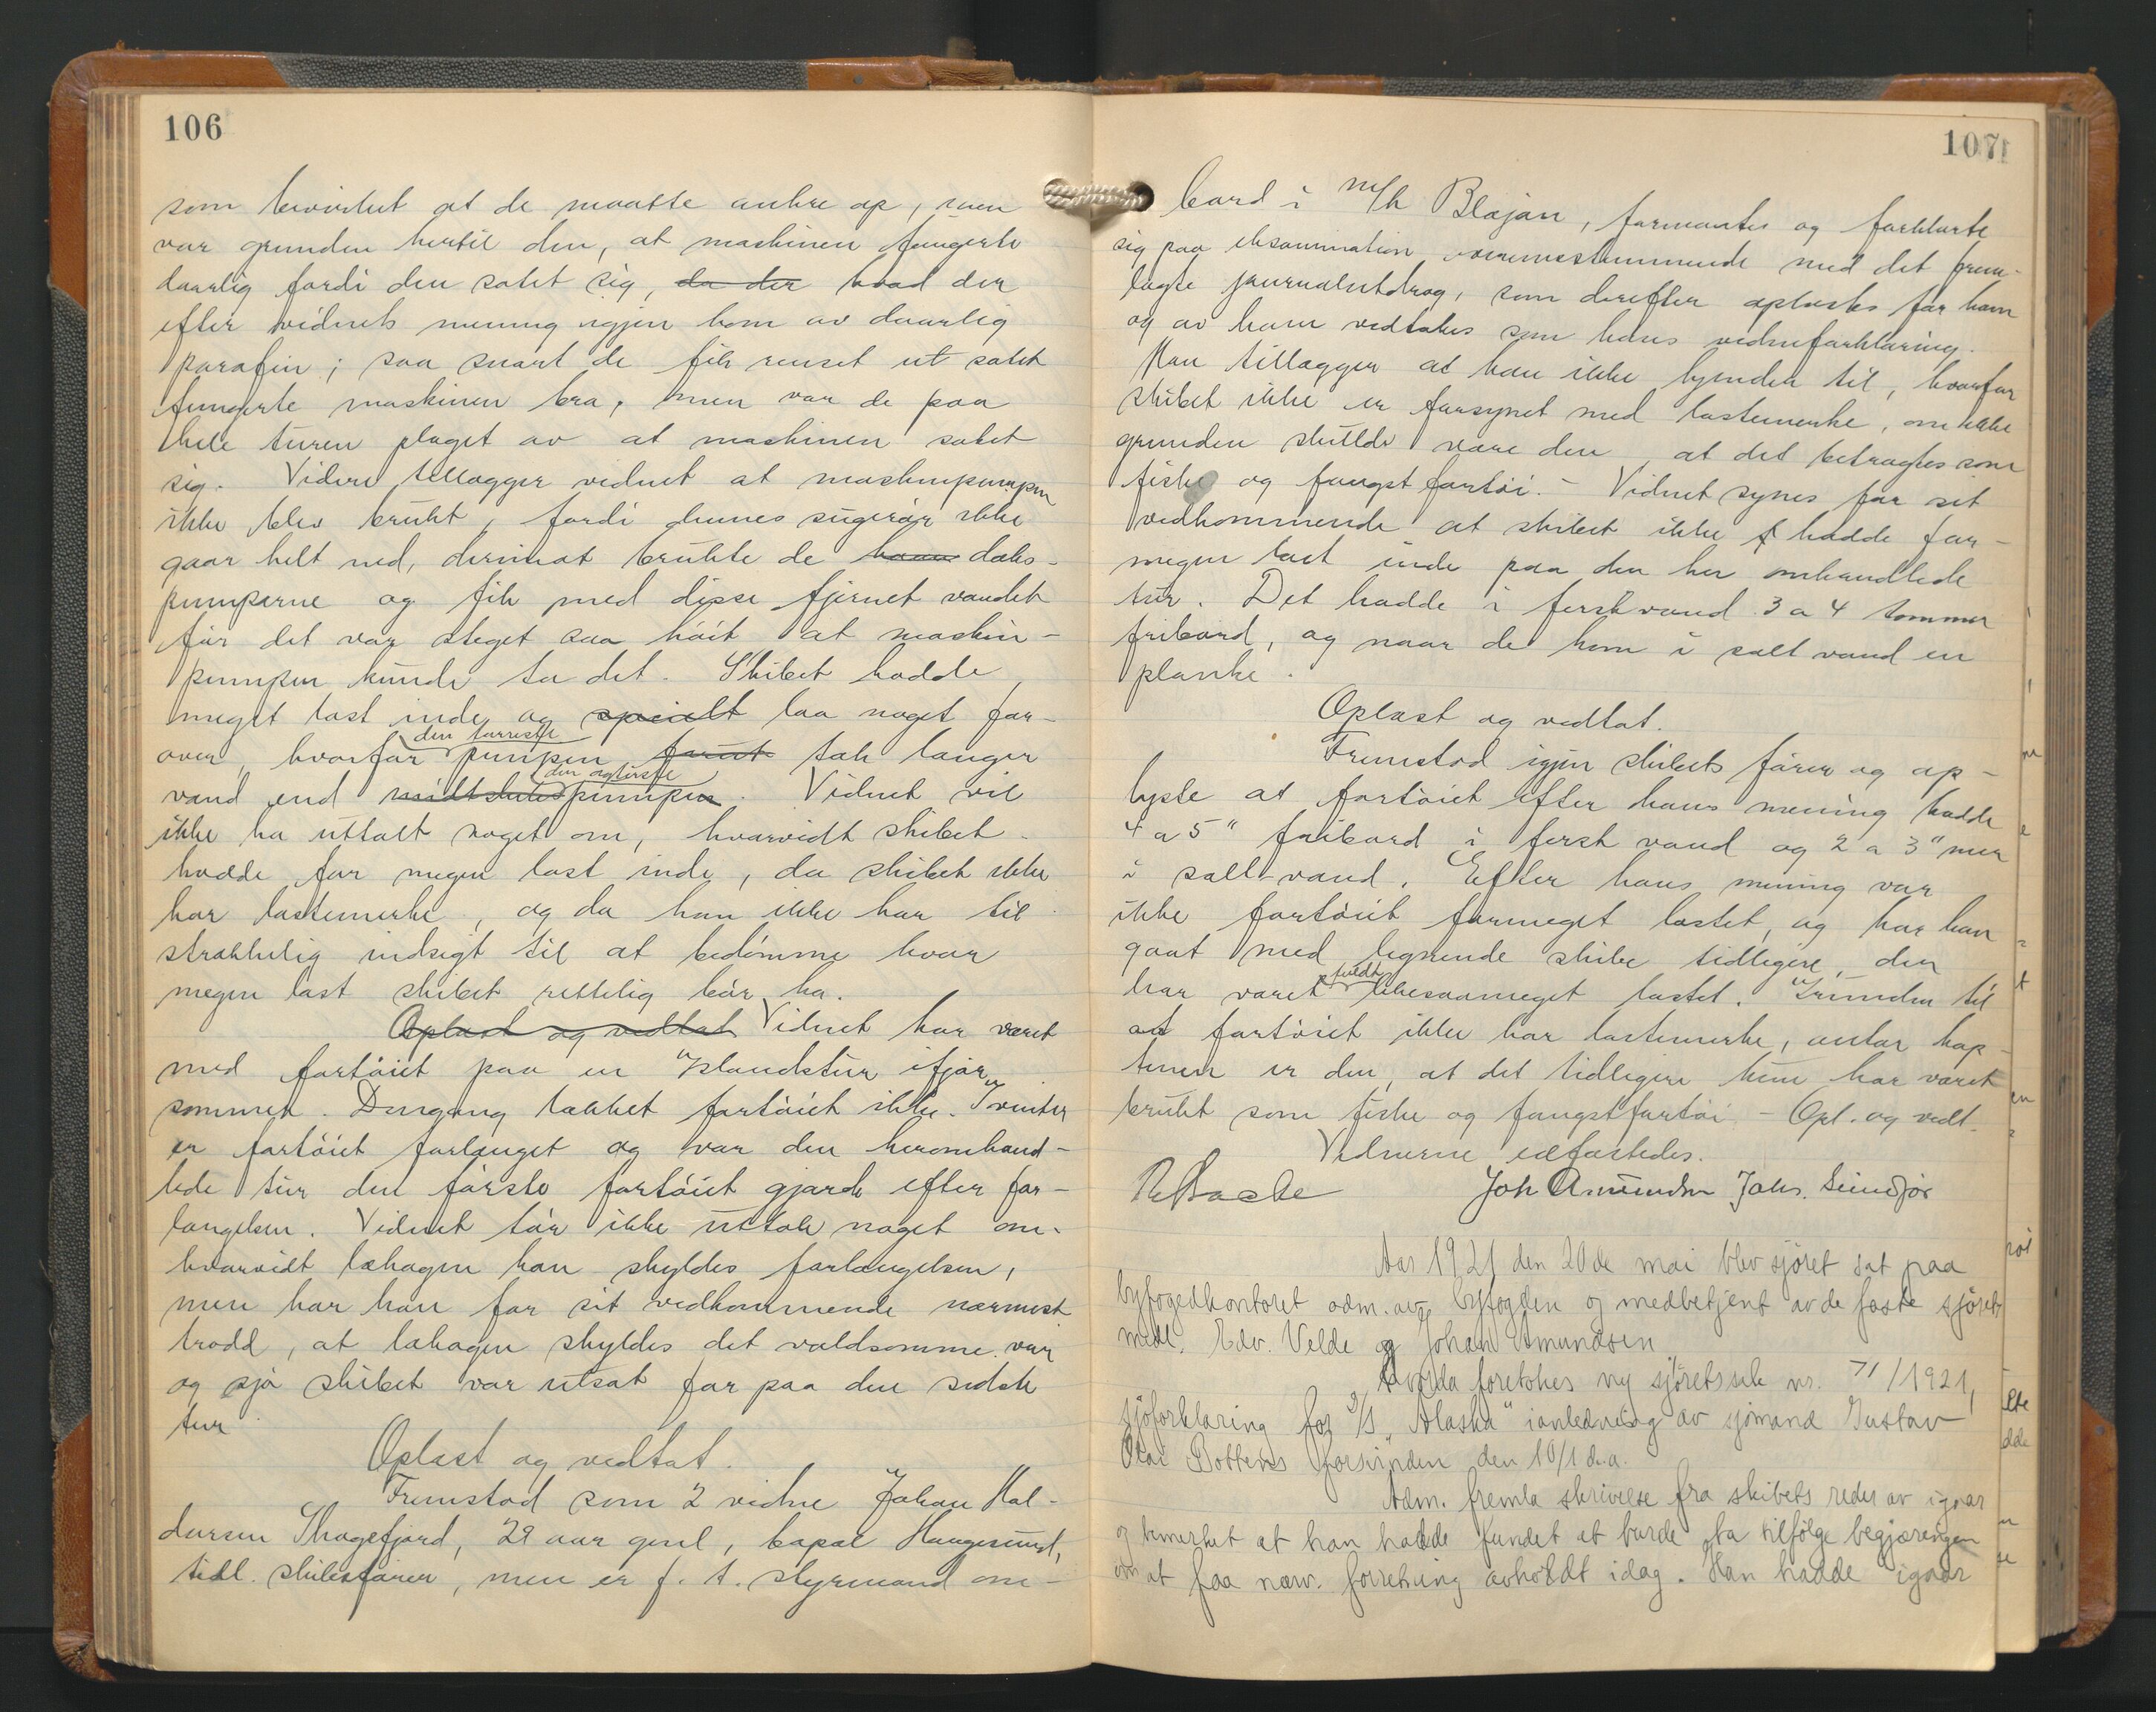 106
som bevirket at de maatte ankre op, men
var grunden hertil den, at maskinen fungerte
daarlig fordi den sotet sig, da der hvad der
efter vidnets mening igjen kom av daarlig
parafin; saa snart de fik renset ut sotet
fungerte maskinen bra, men var de paa
hele turen plaget av at maskinen sotet
sig. Videre tillægger vidnet at maskinpumpen
ikke blev brukt, fordi dennes sugerør ikke
gaar helt ned, derimot brukte de haan dæks-
pumperne og fik med disse fjernet vandet
før det var steget saa høit at maskin-
pumpen kunde ta det. Skibet hadde
meget last inde og specielt laa noget for-
over, hvorfor den forreste pumpen forut tok længer
vand end midtskibs den agterste pumpen. Vidnet vil
ikke ha uttalt noget om, hvorvidt skibet
hadde for megen last inde, da skibet ikke
har lastemerke, og da han ikke har til
strækkelig indsigt til at bedømme hvor
megen last skibet rettelig bør ha.
Oplæst og vedtat Vidnet har været
med fartøiet paa en Islandstur ifjor
sommer. Dengang lækket fartøiet ikke. I vinter
er fartøiet forlænget og var den heromhand-
lede tur den første fartøiet gjorde efter for-
længelsen. Vidnet tør ikke uttale noget om
hvorvidt lækagen kan skyldes forlængelsen,
men har han for sit vedkommende nærmest
trodd, at lækagen skyldes det voldsomme veir
og sjø skibet var utsat for paa den sidste
tur
Oplæst og vedtat.
Fremstod som 2 vidne Johan Hal-
dorsen Skogefjord, 29 aar gml, bopæl Haugesund,
tidl. skibsfører, men er f. t. styrmand om-
107
bord i m/k Blajan, formantes og forklarte
sig paa eksamination overensstemmende med det frem-
lagte journalutdrag, som derefter oplæstes for ham
og av ham vedtokes som hans vidneforklaring.
Han tillægger at han ikke kjender til, hvorfor
skibet ikke er forsynet med lastemerke, om ikke
grunden skulde være den at det betragtes som
fiske og fangst fartøi. - Vidnet synes for sit
vedkommende at skibet ikke hadde for-
megen last inde paa den her omhandlede
tur. Det hadde i ferskvand 3 a 4 tommer
fribord, og naar de kom i salt vand en
planke.
Oplæst og vedtat.
Fremstod igjen skibets fører og op-
lyste at fartøiet efter hans mening hadde
4 a 5" fribord i fersk vand og 2 a 3" mer
i salt-vand. Efter hans mening var
ikke fartøiet formeget lastet, og har han
gaat med lignende skibe tidligere, den
har været fuldt likesaameget lastet. Grunden til
at fartøiet ikke har lastemerke, antar kap-
teinen er den, at det tidligere kun har været
brukt som fiske og fangstfartøi - Opl. og vedt.
Vidnerne edfæstedes.
Joh Amundsen Johs. Sundfør
Aar 1921 den 20de mai blev sjøret sat paa
byfogedkontoret adm. av byfogden og medbetjent av de faste sjøretts
medl. Edv. Velde og Johan Amundsen
Hvorda foretokes ny sjøretssak nr. 71/1921,
sjøforklaring for s/s "Alaska" i anledning av sjømand Gustav
Olai Bottens forsvinden den 10/1 d.a.
Adm. fremla skrivelse fra skibets reder av igaar
og bemerket at han hadde fundet at burde ta tilfølge begjæringen
om at faa nærv. forretning avholdt idag. Han hadde igaar